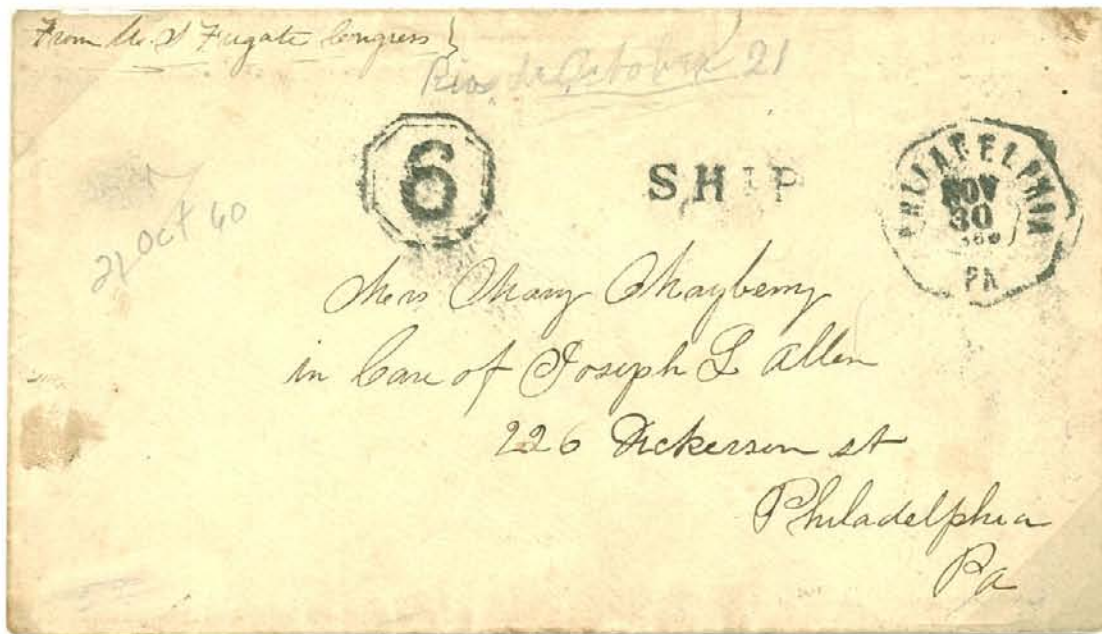 From U. S Frigate Congress
Rio de October 21
6
SHIP
PHILADELPHIA
NOV
30
1860
PA
21 Oct 60
Mrs Mary Mayberry
in Care of Joseph L Allen
226 Dickerson st
Philadelphia
Pa